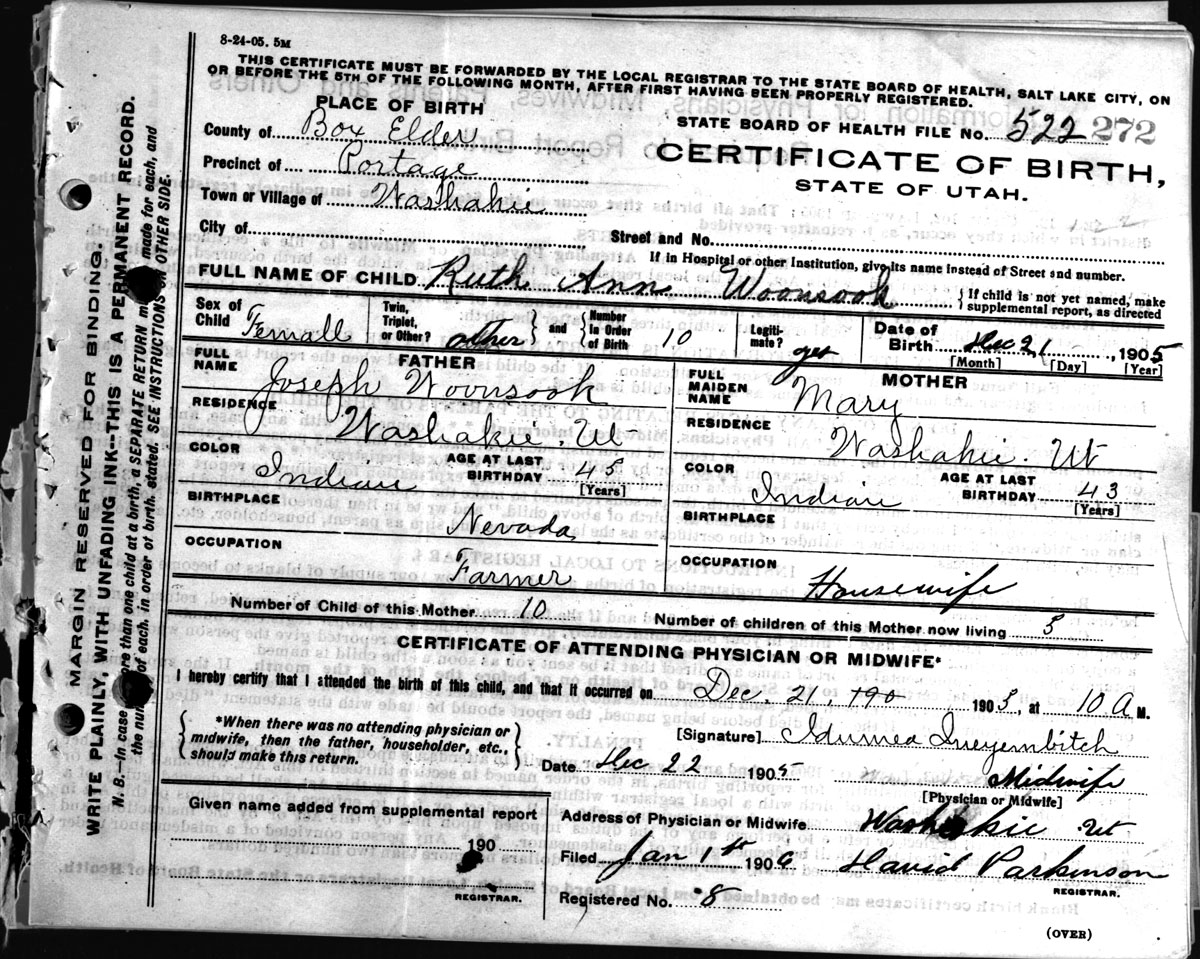 8-24-05. 5M
THIS CERTIFICATE MUST BE FORWARDED BY THE LOCAL REGISTRAR TO THE STATE BOARD OF HEALTH, SALT LAKE CITY, ON
OR BEFORE THE 5TH OF THE FOLLOWING MONTH, AFTER FIRST HAVING BEEN PROPERLY REGISTERED.
PLACE OF BIRTH
STATE BOARD OF HEALTH FILE No. 522 272
County of Box Elder
CERTIFICATE OF BIRTH,
STATE OF UTAH.
Precinct of Portage
Town or Village of Washakie
City of
Street and No.
If in Hospital or other Institution, give its name instead of Street and number.
FULL NAME OF CHILD Ruth Ann Woonsook
{ If child is not yet named, make supplemental report, as directed
Sex of Child Femall
Twin, Triplet, or Other? other } and { Number in Order of Birth 10
Legiti-mate? yes
Date of Birth Dec 21, 1905
[Month] [Day] [Year]
FATHER
FULL NAME Joseph Woonsook
RESIDENCE Washakie, Ut
COLOR Indian
AGE AT LAST BIRTHDAY 45
[Years]
BIRTHPLACE Nevada
OCCUPATION Farmer
MOTHER
FULL MAIDEN NAME Mary
RESIDENCE Washakie. Ut
COLOR Indian
AGE AT LAST BIRTHDAY 43
[Years]
BIRTHPLACE
OCCUPATION Housewife
Number of Child of this Mother 10
Number of children of this Mother now living 5
CERTIFICATE OF ATTENDING PHYSICIAN OR MIDWIFE*
I hereby certify that I attended the birth of this child, and that it occurred on Dec, 21, 190 1905, at 10 A M.
{ *When there was no attending physician or
midwife, then the father, householder, etc.,
should make this return. }
[Signature] Idumea
Date Dec 22 1905
Midwife
[Physician or Midwife]
Given name added from supplemental report
190
REGISTRAR.
Address of Physician or Midwife Washakie Ut
Filed Jan 1st 1906 David Parkinson
REGISTRAR.
Registered No. 8
(OVER)
MARGIN RESERVED FOR BINDING.
WRITE PLAINLY, WITH UNFADING INK--THIS IS A PERMANENT RECORD.
N. B.--In case more than one child at a birth, a SEPARATE RETURN made for each, and
the number of each, in order of birth, stated. SEE INSTRUCTIONS ON OTHER SIDE.